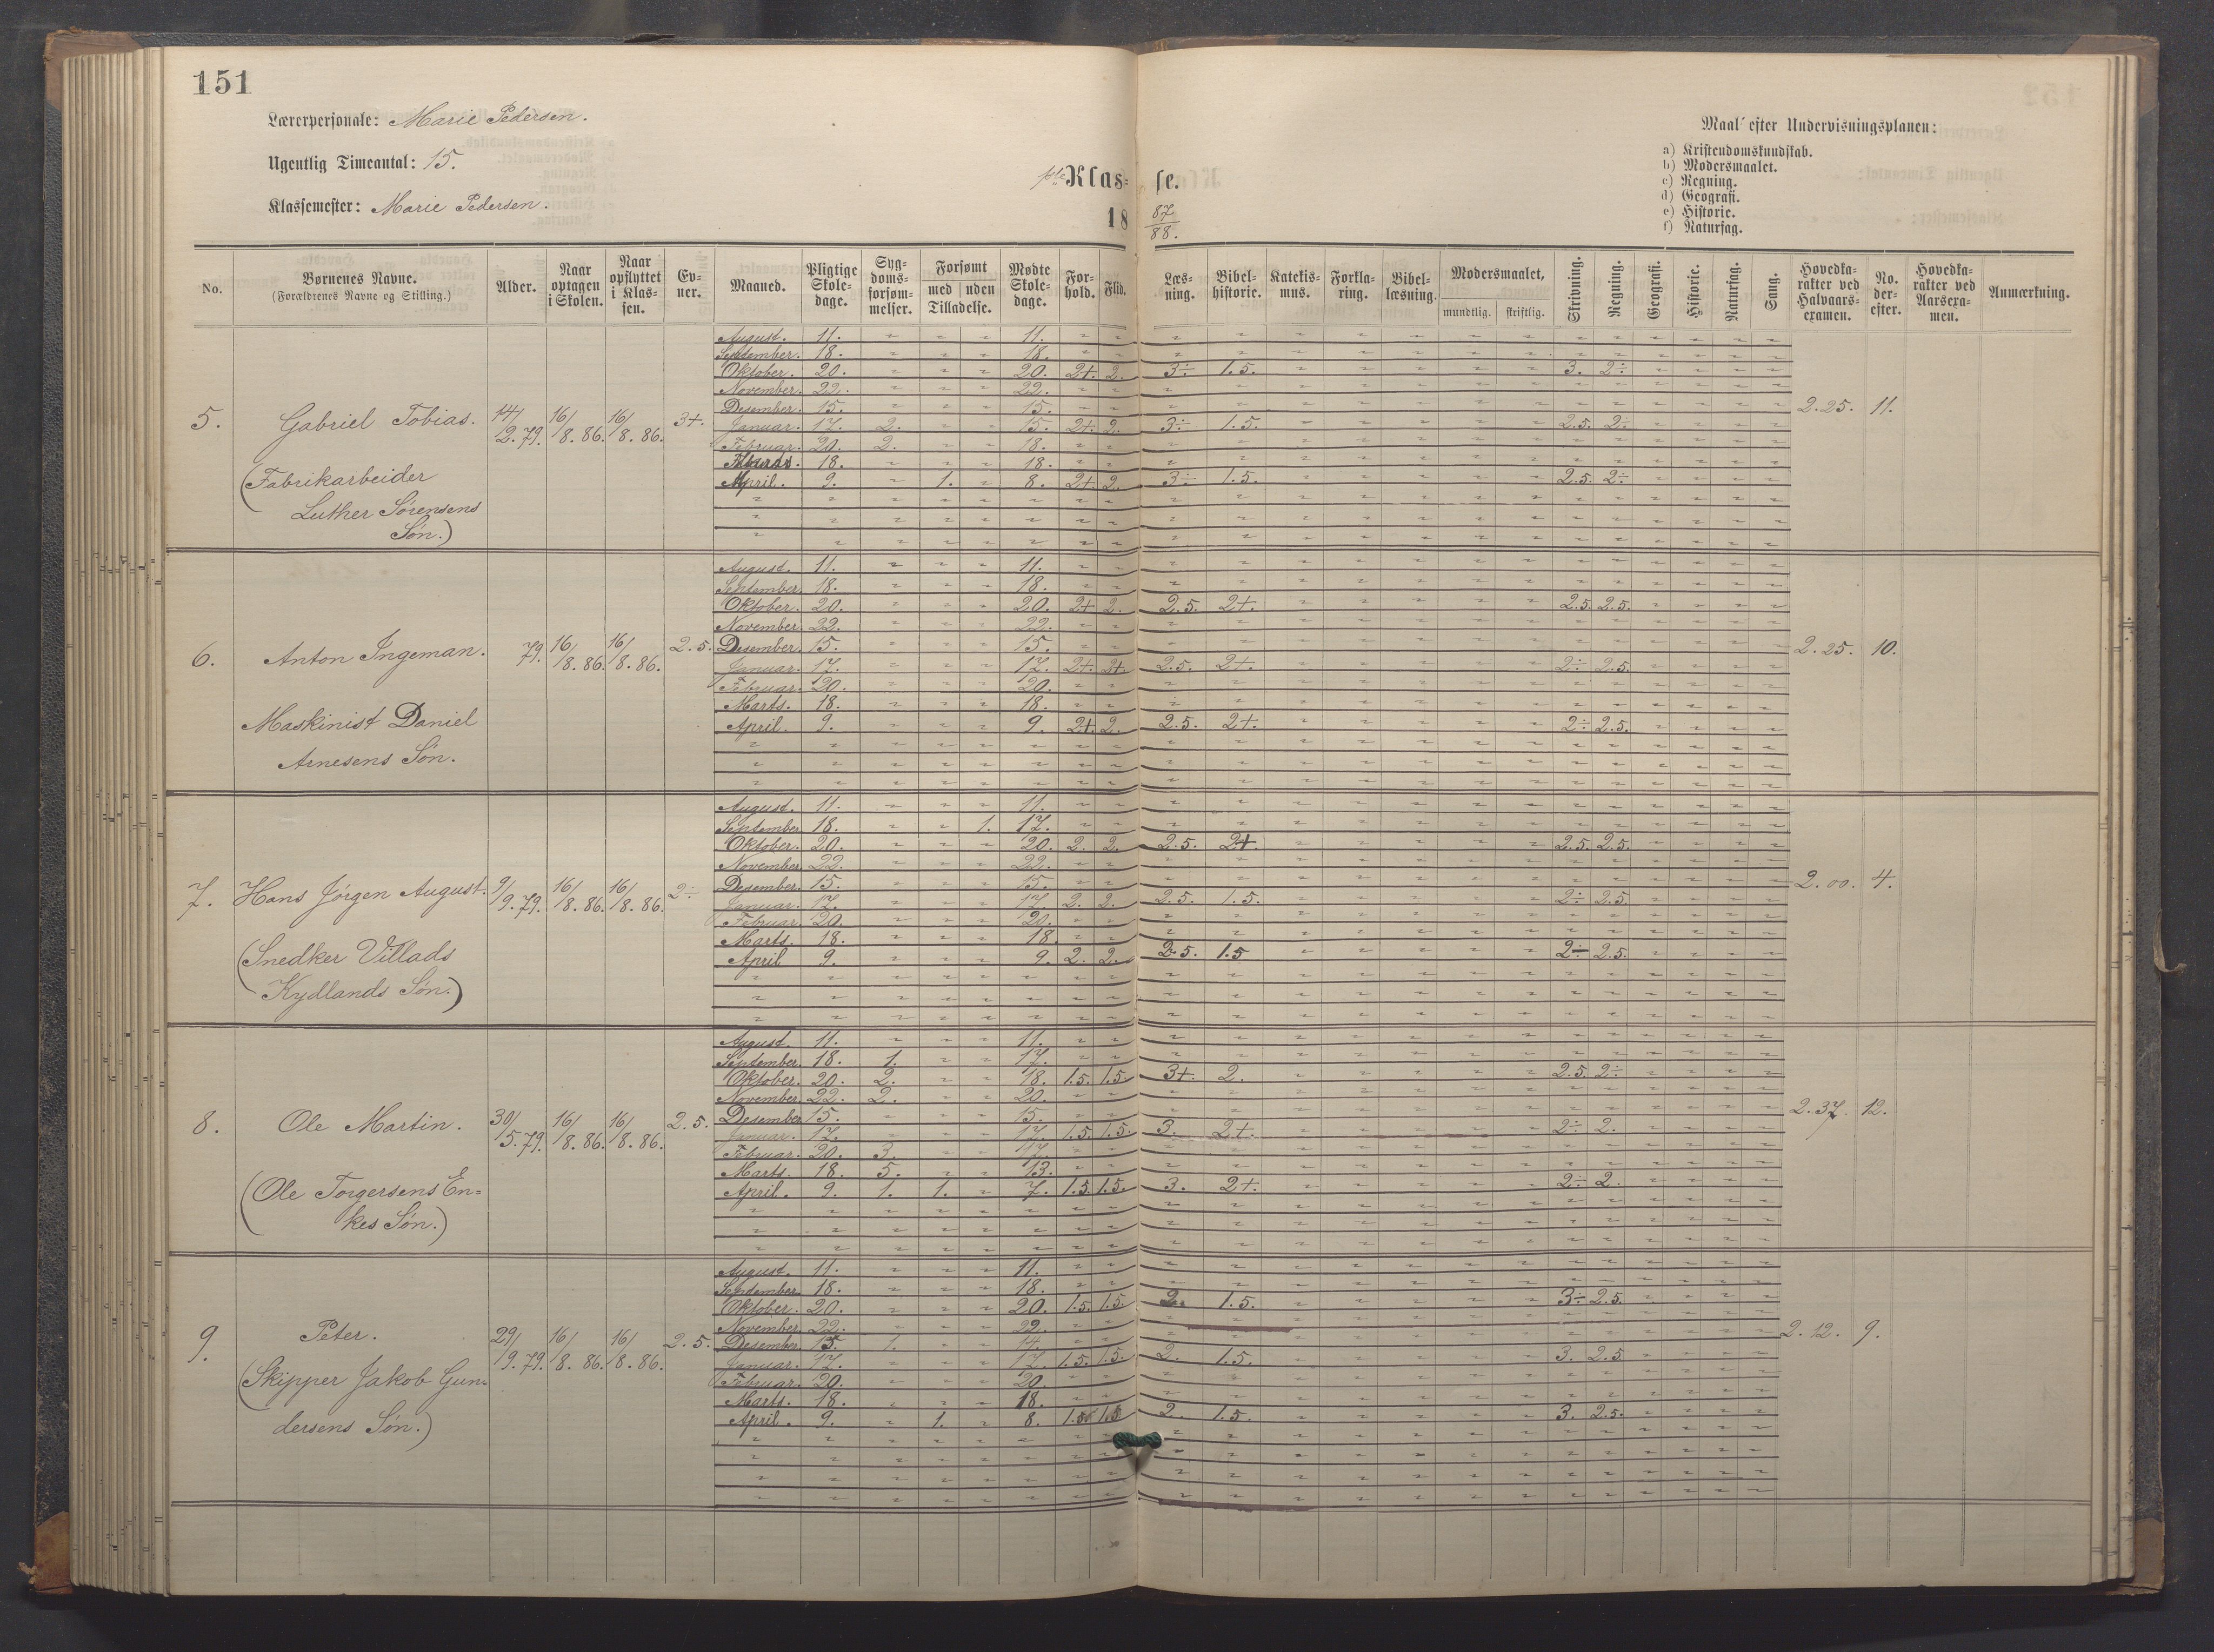 151
Lærerpersonale: Marie Pedersen.
Ugentlig Timeantal: 15.
Klassemester: Marie Pedersen.
1ste Klas= se.
18 87/88.
Maal efter Undervisningsplanen:
a) Kristendomskundskab.
b) Modersmaalet.
c) Regning.
d) Geografi.
e) Historie.
f) Naturfag.
No. Børnenes Navne. (Forældrenes Navne og Stilling.) Alder. Naar optagen i Skolen. Naar opflyttet i Klas=sen. Ev=ner. Maaned. Pligtige Skole=dage. Syg=doms=forsøm=melser. Forsømt med uden Tilladelse. Mødte Skole=dage. For=hold. Flid. Læs=ning. Bibel=historie. Katekis=mus. Forkla=ring. Bibel=læsning. Modersmaalet, mundtlig. skriftlig. Skrivning. Regning. Geografi. Historie. Naturfag. Sang. Hovedka=rakter ved Halvaars=examen. No. der=efter. Hovedka=rakter ved Aarsexa=men. Anmærkning.
5. Gabriel Tobias. 14/2.79. 16/8.86. 16/8.86. 3+. 2.25. 11.
(Fabrikarbeider
Luther Sørensens
Søn.)
August. 11. 11.
September. 18. 18.
Oktober. 20. 20. 2+. 2. 3÷ 1.5. 3. 2÷
November. 22. 22.
Desember. 15. 15.
Januar. 17. 2. 15. 2+. 2. 3÷ 1.5. 2.5. 2÷
Februar. 20. 2. 18.
18. 18.
April. 9. 1. 8. 2+. 2. 3÷ 1.5. 2.5. 2÷
6. Anton Ingeman. 79. 16/8.86. 16/8.86. 2.5. 2.25. 10.
Maskinist Daniel
Arnesens Søn.
August. 11. 11.
September. 18. 18.
Oktober. 20. 20. 2+ 2. 2.5. 2+. 2.5. 2.5.
November. 22. 22.
Desember. 15. 15.
Januar. 17. 17. 2+. 2+. 2.5. 2+. 2÷ 2.5.
Februar. 20. 20.
Marts. 18. 18.
April. 9. 9. 2+. 2. 2.5. 2+. 2÷ 2.5.
7. Hans Jörgen August. 9/9.79. 16/8.86. 16/8.86. 2÷ 2.00. 4.
(Snedker Villads
Kydlands Søn.)
August. 11. 11.
September. 18. 1. 17.
Oktober. 20. 20. 2. 2. 2.5. 2+. 2.5. 2.5.
November. 22. 22.
Desember. 15. 15.
Januar. 17. 17. 2. 2. 2.5. 1.5. 2÷ 2.5.
Februar. 20. 20.
Marts. 18. 18.
April 9. 9. 2. 2. 2.5. 1.5 2÷ 2.5.
8. Ole Martin. 30/5.79. 16/8.86. 16/8.86. 2.5. 2.37. 12.
(Ole Torgersens En=
kes Søn.)
August. 11. 11.
September. 18. 1. 17.
Oktober. 20. 2. 18. 1.5. 1.5. 3+. 2. 2.5. 2÷
November. 22. 2. 20.
Desember 15. 15.
Januar. 17. 17. 1.5. 1.5. 3. 2+. 2÷ 2.
Februar. 20. 3. 17.
Marts. 18. 5. 13.
April. 9. 1. 1. 7. 1.5. 1.5. 3. 2+. 2÷ 2.
9. Peter. 29/9.79. 16/8.86. 16/8.86. 2.5. 2.12. 9.
(Skipper Jakob Gun=
dersens Søn.)
August. 11. 11.
September. 18. 18.
Oktober. 20. 20. 1.5. 1.5. 2. 1.5. 3÷ 2.5.
November. 22. 22.
Desember. 15. 1. 14.
Januar. 17. 17. 1.5. 1.5. 2. 1.5. 3. 2.5.
Februar. 20. 20.
Marts. 18. 18.
April. 9. 1. 8. 1.5. 1.5 2. 1.5. 3. 2.5.